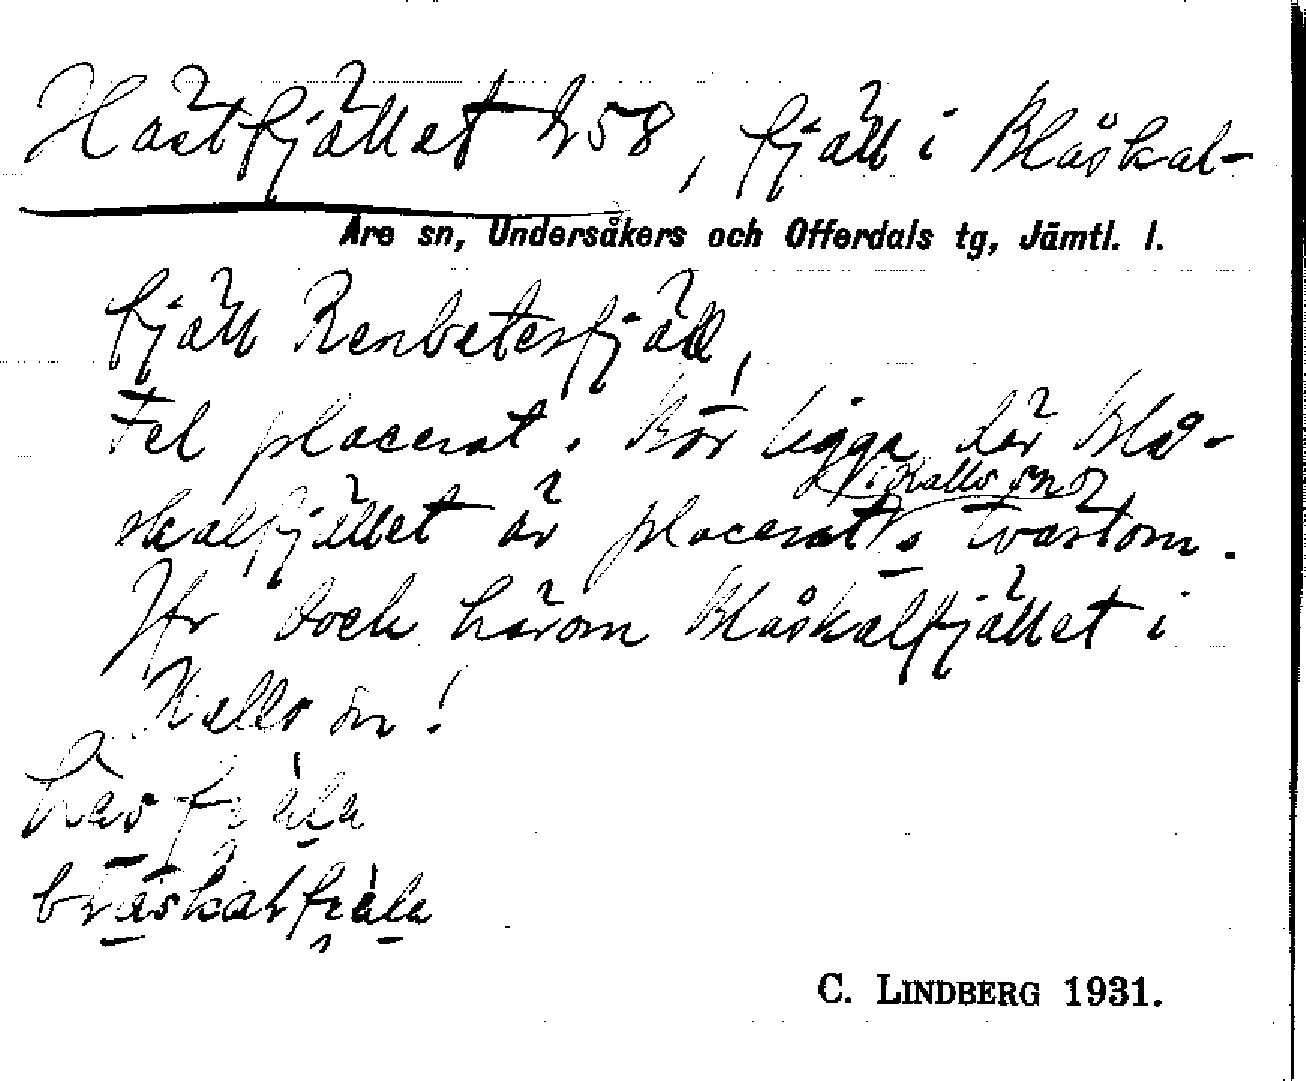 Hästfjället h58, fjäll i Blåskal-
Åre sn, Undersåkers och Offerdals tg, Jämtl. l.
fjäll Renbetesfjäll,
Fel placerat. Bör ligga där Blå-
i Kalls sn
skalfjället är placerat, o tvärtom.
Jfr dock härom Blåskalfjället i
Kalls sn!
C. LINDBERG 1931.